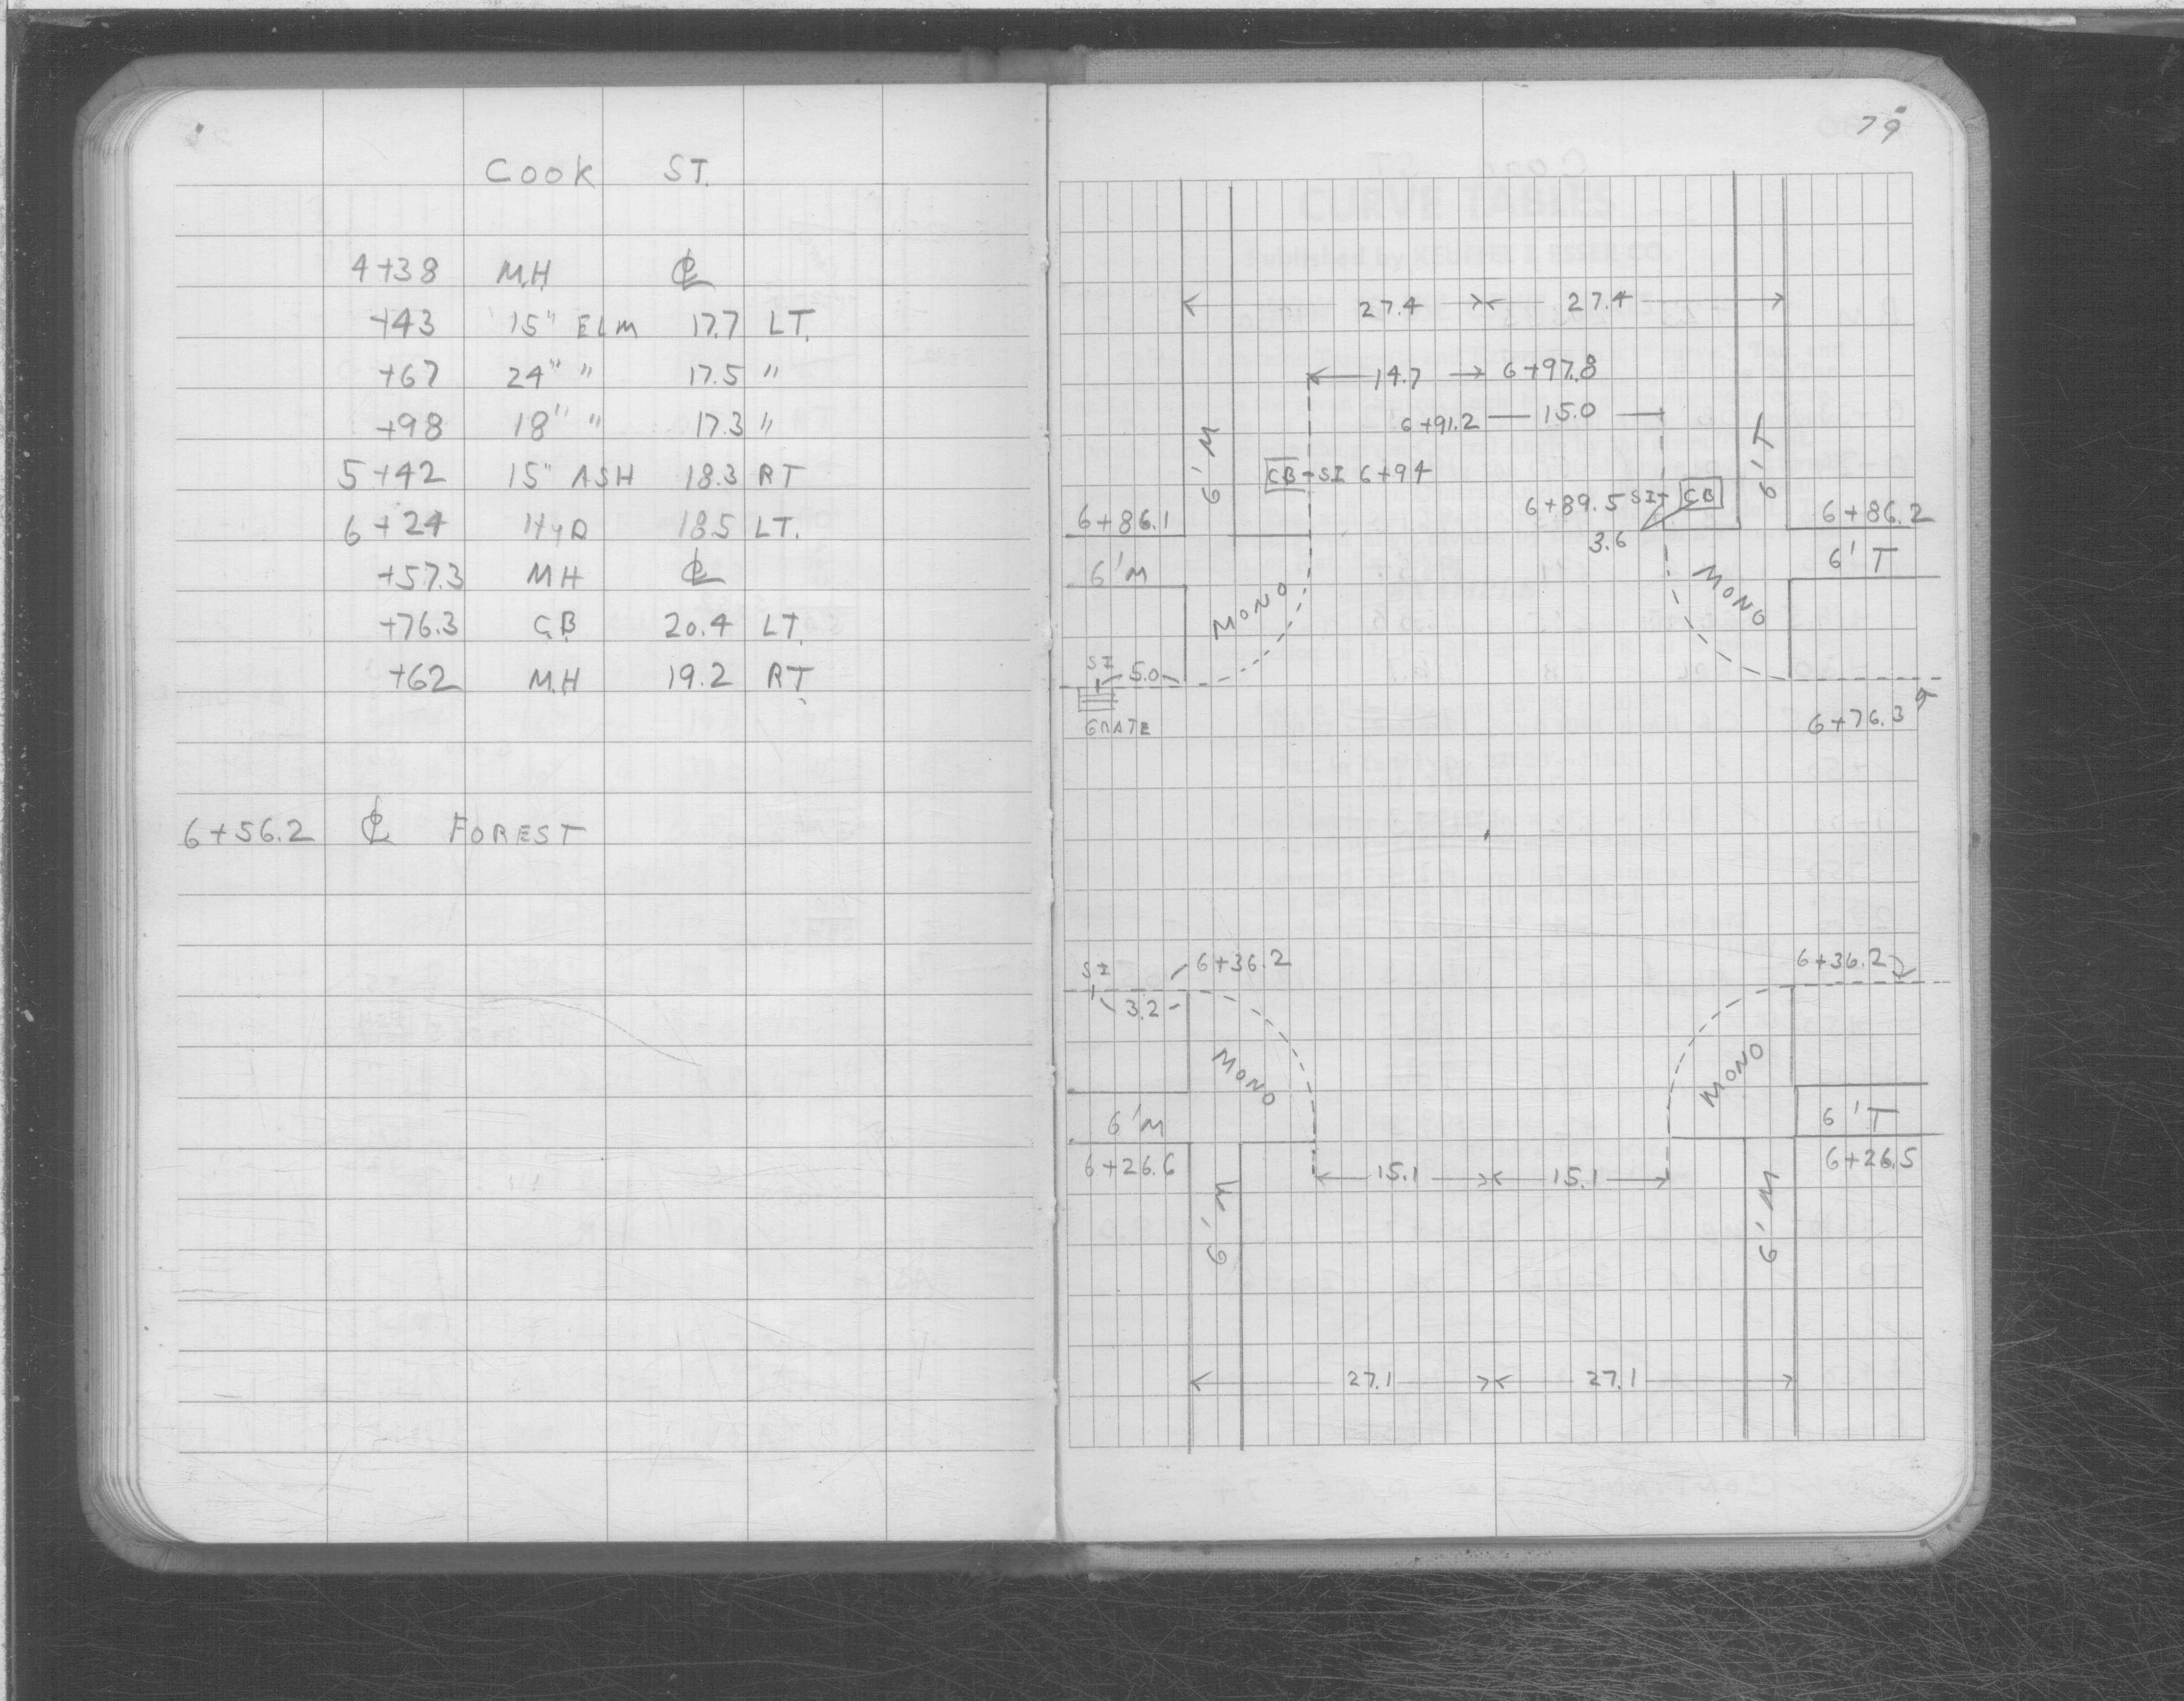 COOK ST.
4+38 M.H. ℄
+43 15" ELM 17.7 LT.
+67 24" " 17.5 "
+98 18" " 17.3 "
5+42 15" ASH 18.3 RT
6+24 HYD 18.5 LT.
+57.3 MH ℄
+76.3 C.B. 20.4 LT.
+62 M.H. 19.2 RT.
6+56.2 ℄ FOREST
79
27.4 27.4
14.7 6+97.8
6+91.2 15.0
6'M
6'T
CB-SI 6+94
6+89.5 SI- CB
3.6
6+86.1
6+86.2
6'M
6'T
MONO
MONO
SI 5.0
GRATE
6+76.3
SI
6+36.2
6+36.2
3.2
MONO
MONO
6'M
6'T
6+26.6
6+26.5
15.1 15.1
6'M
6'M
27.1 27.1